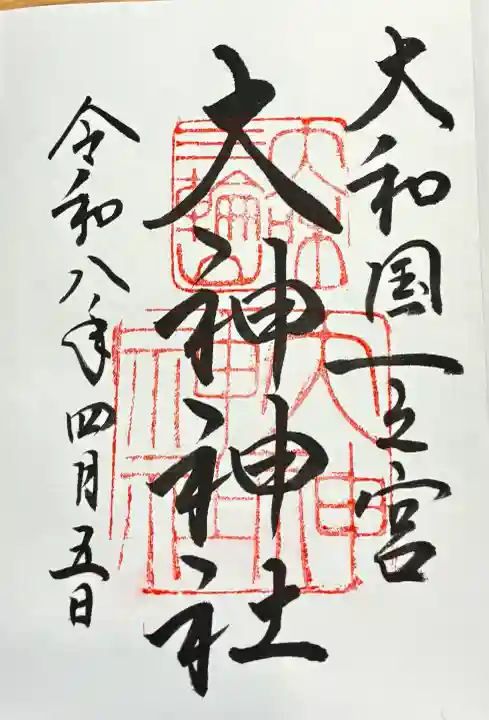 大和国一之宮
大神神社
令和八年四月五日
三輪山
大神神社